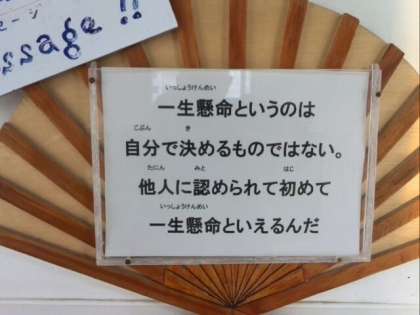 ージ
ssage!!
いっしょうけんめい
一生懸命というのは
じぶん き
自分で決めるものではない。
たにん みと はじ
他人に認められて初めて
いっしょうけんめい
一生懸命といえるんだ